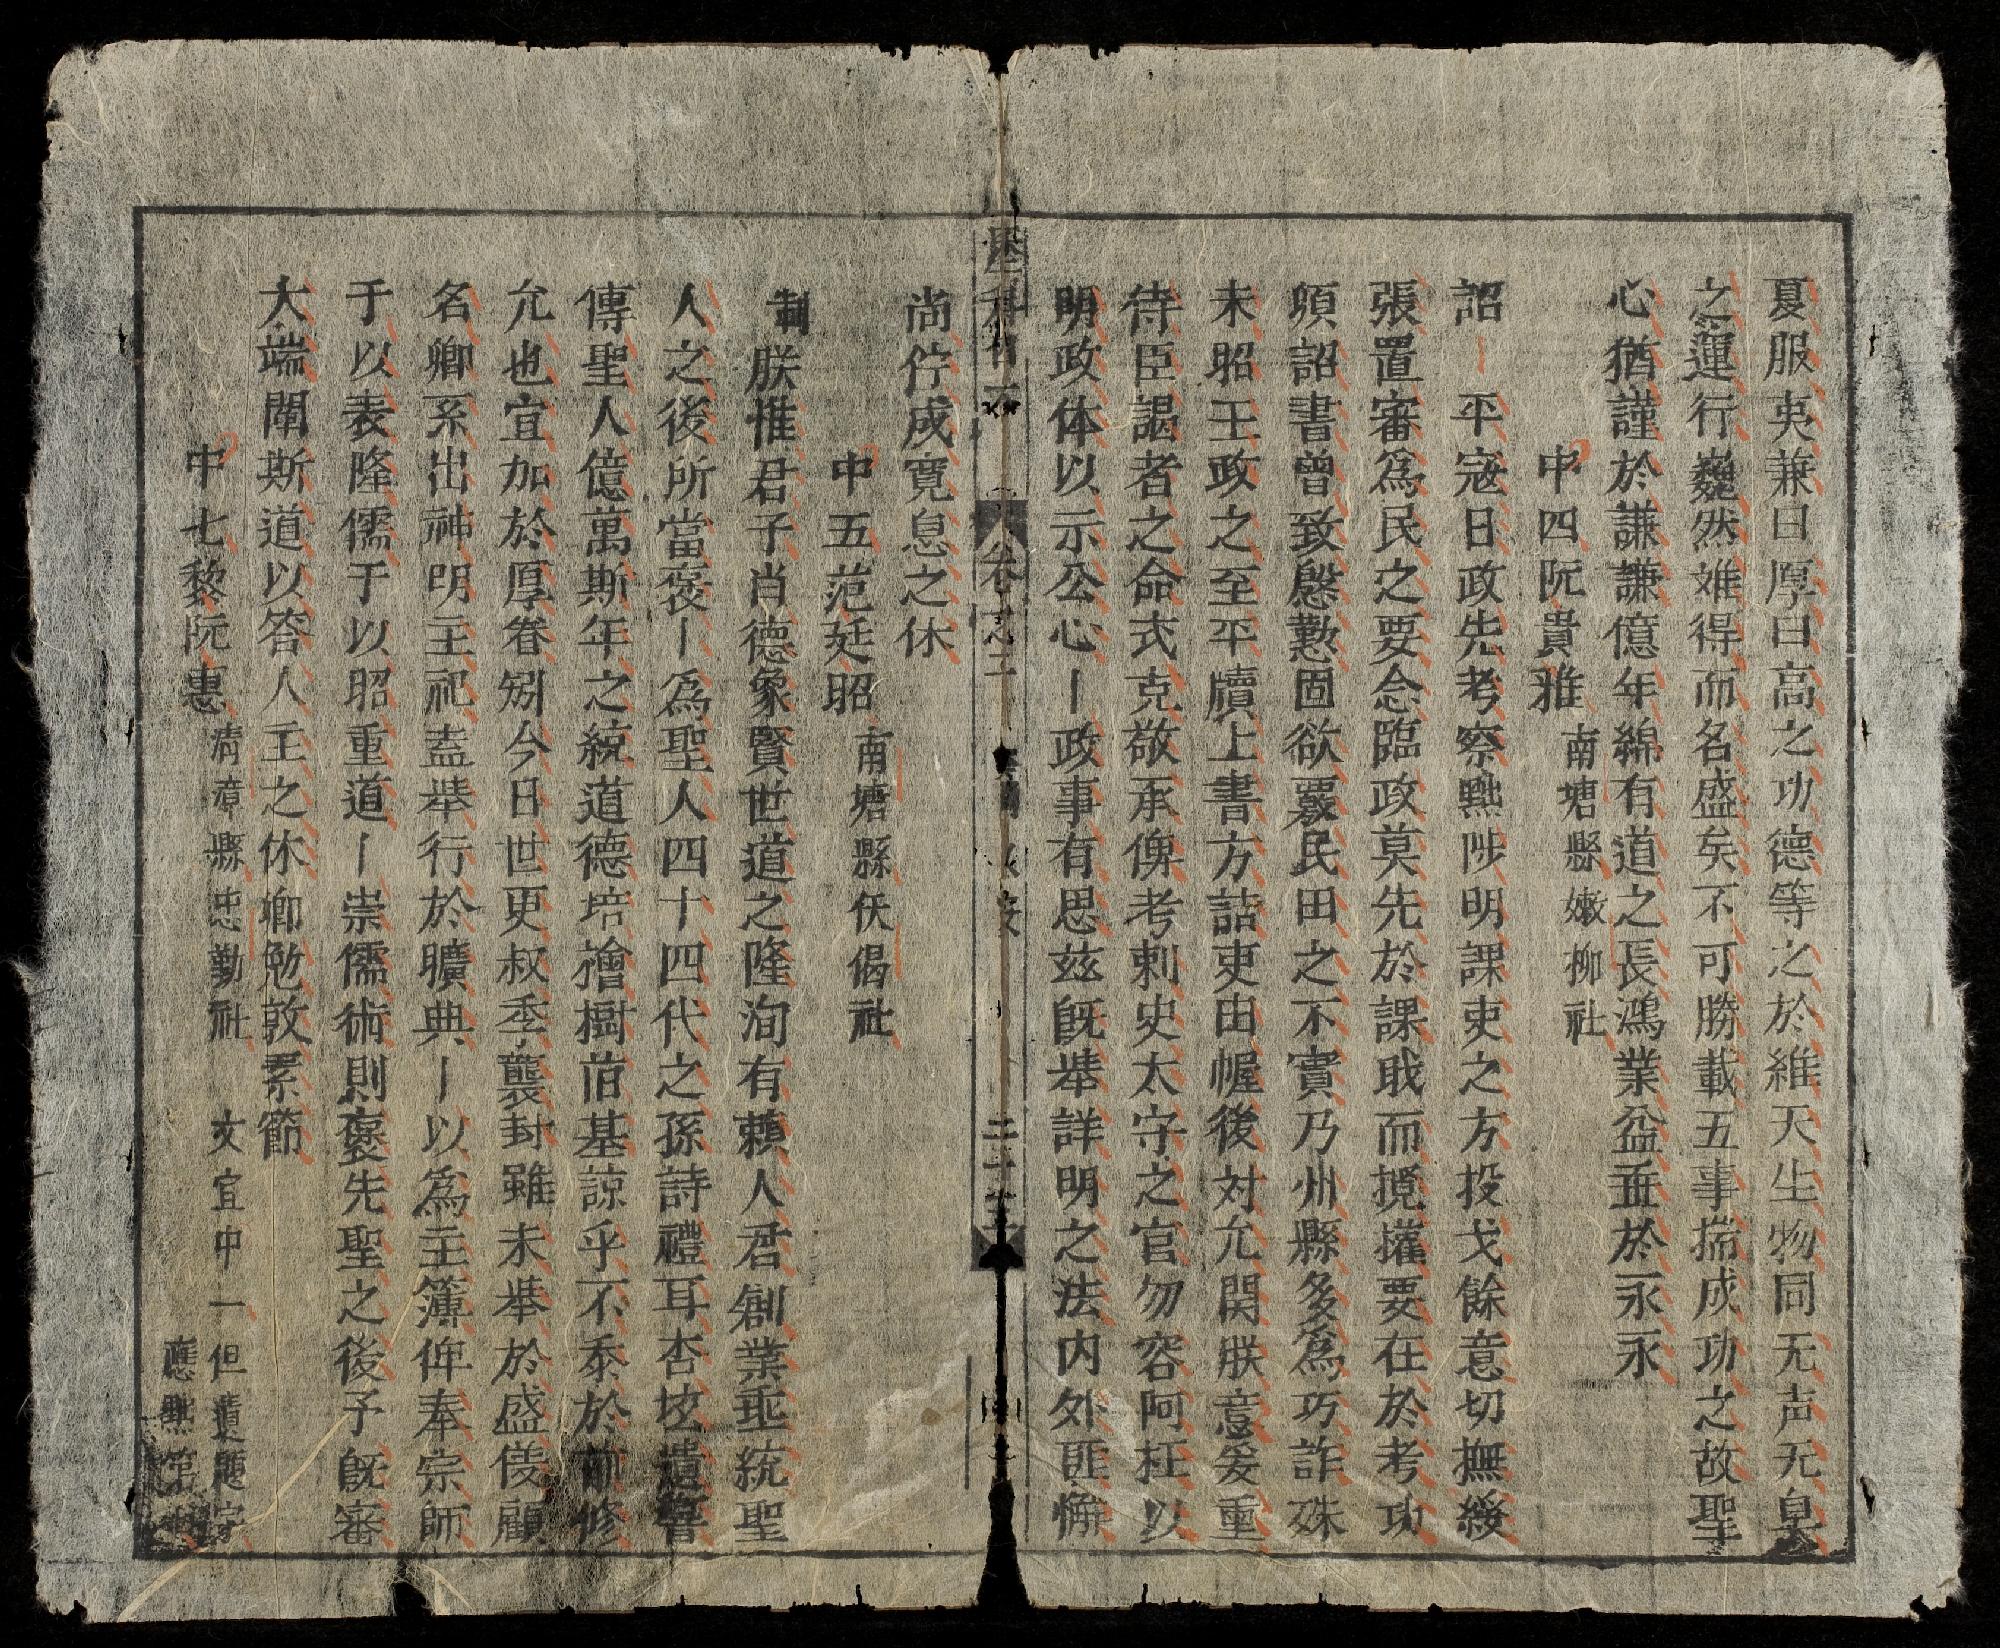 夏服夷兼曰厚曰高之功德等之於維天生物同无声无臭
之運行巍然难得而名盛矣不可勝載五事揣成功之故聖
心猶謹於謙謙億年綿有道之長鴻業益垂於永永
中四阮貴雅 南塘縣嫩柳社
詔 平寇日政先考察黜陟明課吏之方投戈餘意切撫綏
張置審爲民之要念臨政莫先於課戢而攬擢要在於考功
頃詔書曾致慇懃固欲覈民田之不實乃州縣多爲巧詐殊
未昭王政之至平牘上書方詰吏由幄後对允関朕意爰重
侍臣謁者之命式克敬承俾考剌史太守之官勿容阿枉以
明政体以示公心丨政事有思玆旣举詳明之法内外匪懈
尚佇成寬息之休
卷之二
二十五
中五范廷昭 南塘縣伕偈社
制朕惟君子肖德象賢世道之隆洵有賴人君創業垂統聖
人之後所當褒丨爲聖人四十四代之孫詩禮耳杏坛遺響
傳聖人億萬斯年之統道德培檜樹苖基諒乎不忝於前修
允也宜加於厚眷矧今日世更叔季襲封雖未举於盛僕顧
名卿系出神明主祀盍举行於曠典丨以爲主簿俾奉宗師
于以表隆儒于以昭重道丨崇儒術則褒先聖之後予旣審
大端闡斯道以答人主之休卿勉敦素節
中七黎阮惠 清漳縣忠勤社 文宜中一但遺題字
應黜第